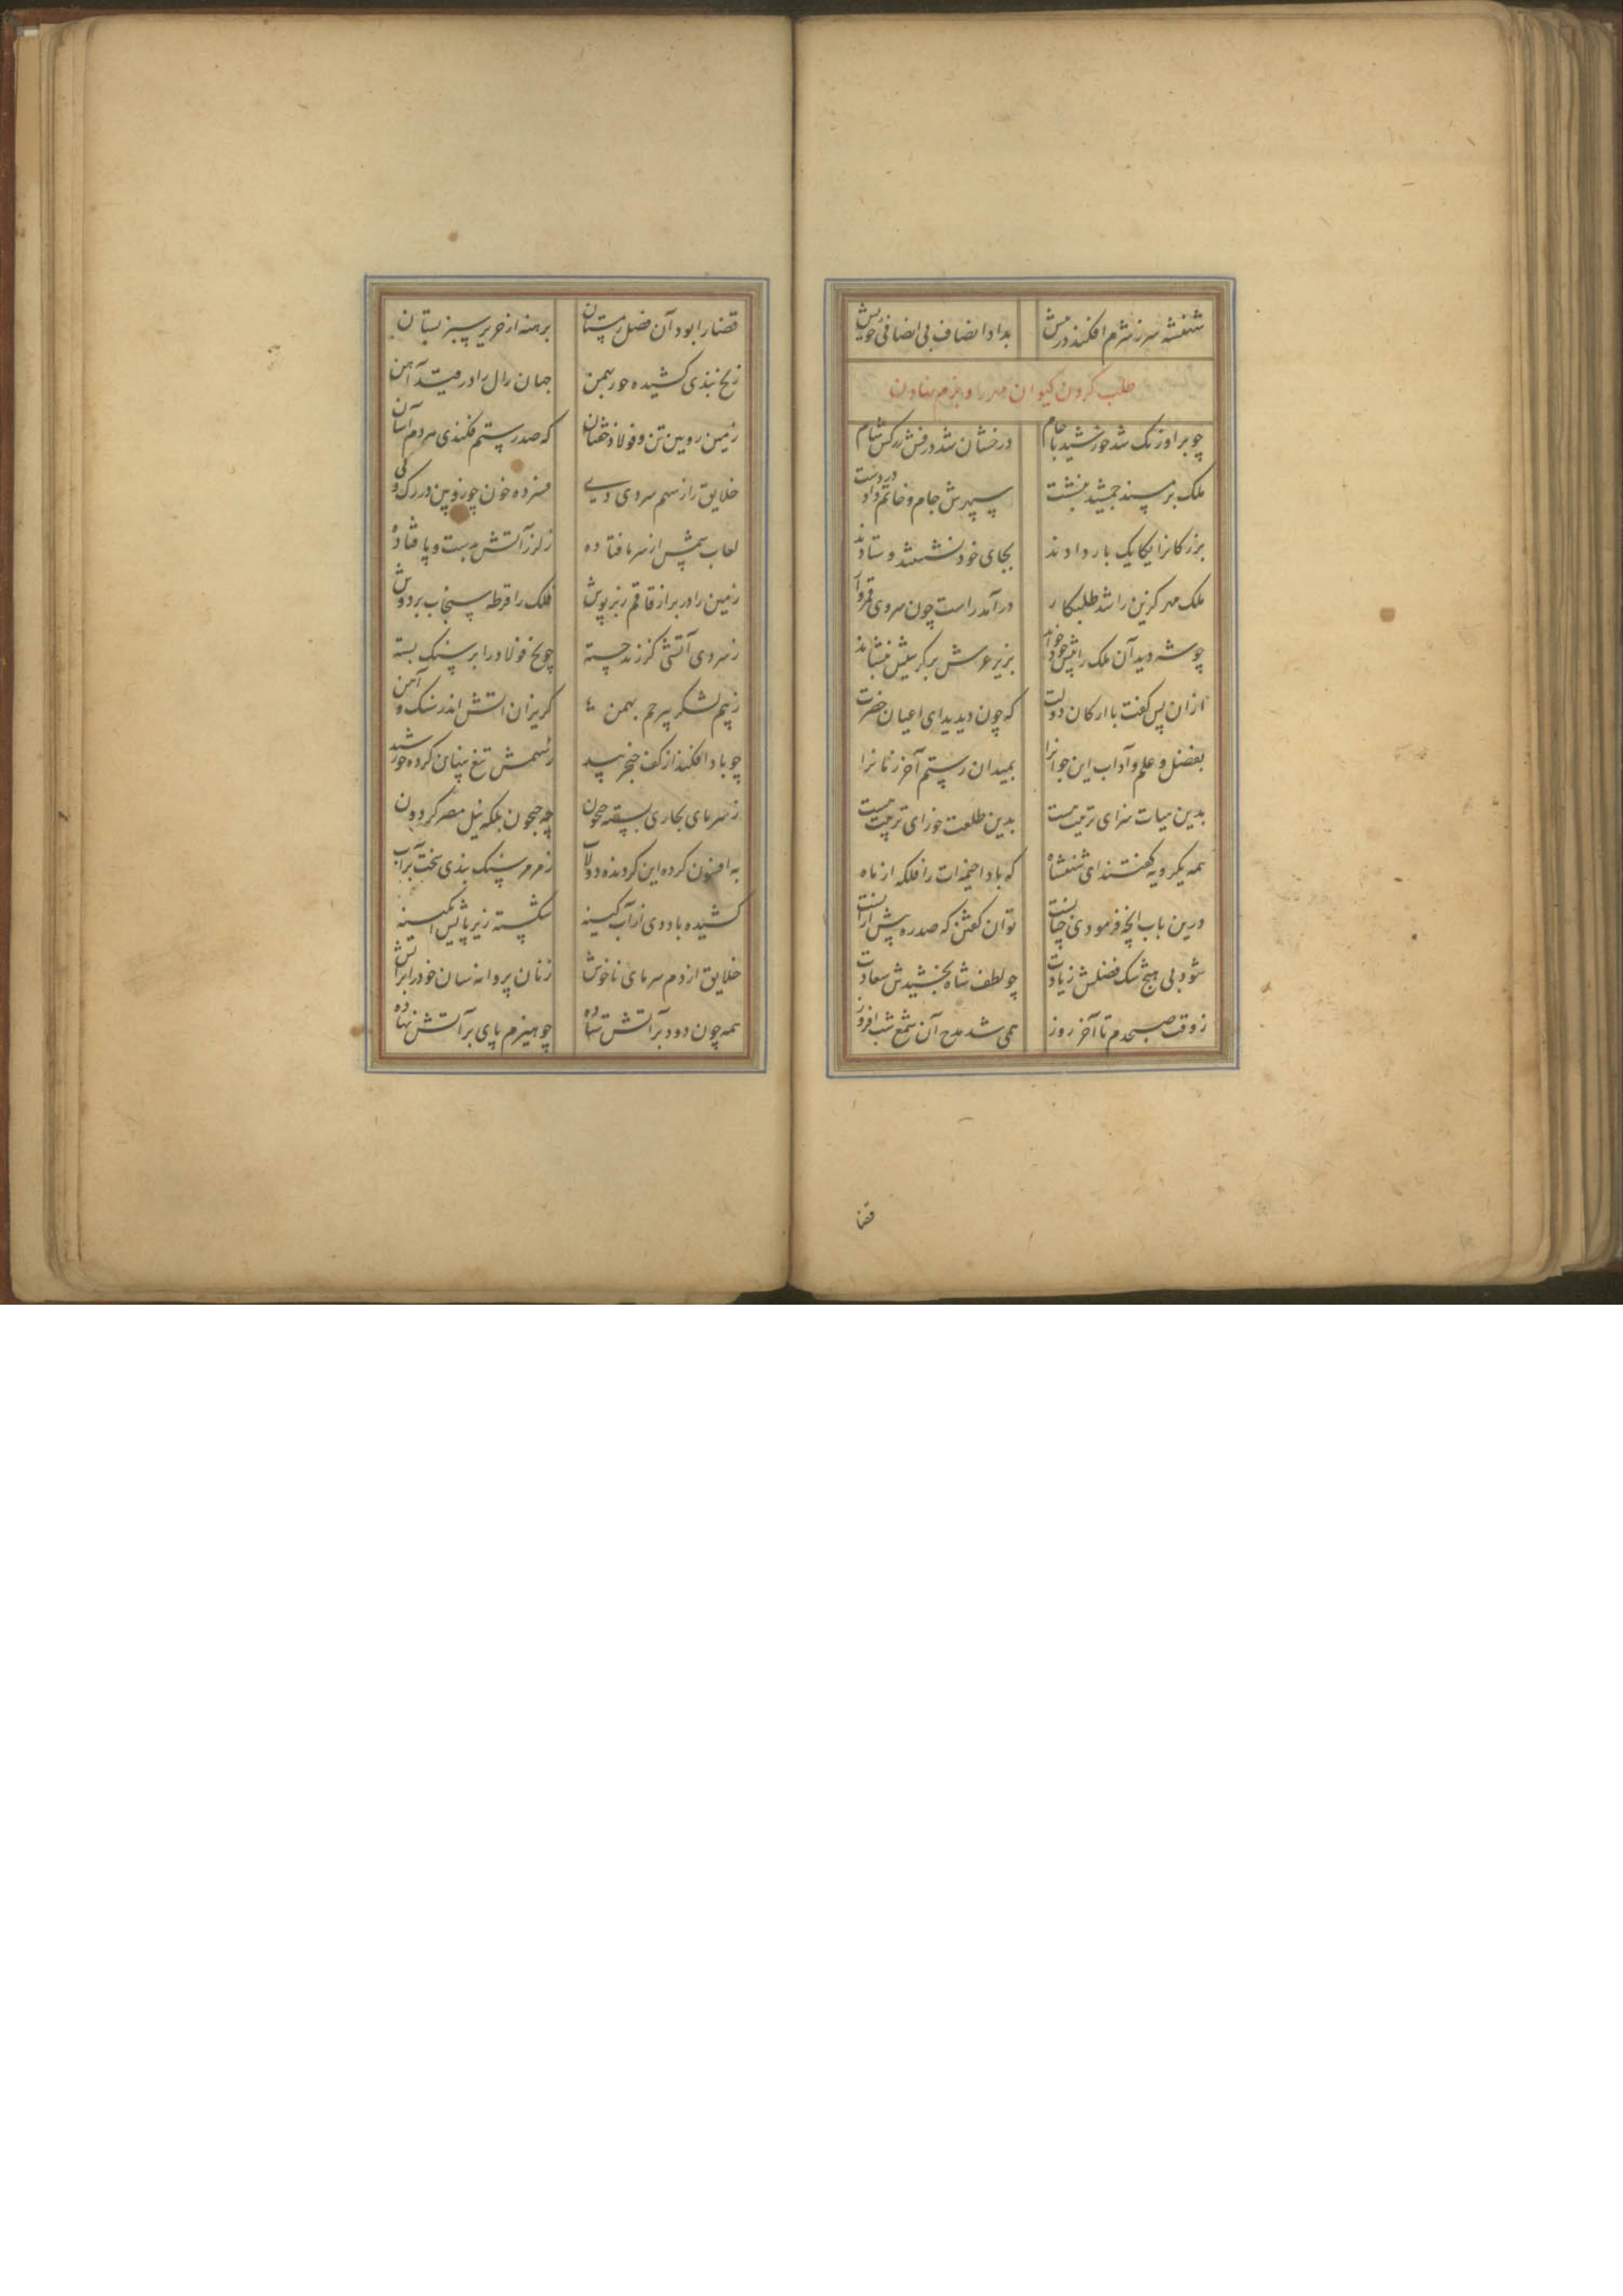 شهنشه سر ز شرم افکند در پیش بداد انصاف بی انصافی خویش
طلب کردن کیوان مهر را و بزم نهادن
چو بر اورنک شد خورشید با جام درخشان شد درفش زرکش شام
ملک بر مسند جمشید بنشست سپهرش جام و خاتم داد در دست
بزرکانرا یکایک بار دادند بجای خود نشستند و ستادند
ملک مهر کزین را شد طلبکار درآمد راست چون سروی
چو شه دید آن ملک را پیش خود خواند بزیر عرش بر کرسیش بنشاند
از ان پس کفت با ارکان دولت که چون دیدید ای اعیان حضرت
بفضل و علم و آداب این جوانرا بمیدان رستم آخر زمانرا
بدین هیات سزای تربیت هست بدین طلعت خورای تربیت هست
همه یکرویه کفتند ای شهنشاه که بادا خیمه‌ات را فلکه از ماه
درین باب انچه فرمودی چنانست توان کفتن که صد ره پیش ازانست
شود بی هیچ شک فضلش زیادت چو لطف شاه بخشیدش سعادت
ز وقت صبحدم تا آخر روز همی شد مدح آن شمع شب افروز
قضا
قضا را بود آن فصل زمستان برهنه از حریر سبز بستان
زنخ بندی کشیده حور بهمن جهان زال را در قید آهن
زمین رویین تن و فولاد خفتان که صد رستم فکندی مردم آسان
خلایق را ز سهم سردی دی فسرده خون چو روین در رک و پی
لعاب شمس از سر ما فتاده ز لرز آتش بدست و پا فتاده
زمین را در بر از قاقم زبرپوش فلک را قرطه سنجاب بر دوش
ز سردی آتشی کز زند جسته چو یخ فولاد را بر سنک بسته
ز بیم لشکر بیرحم بهمن کریزان آتش اندر سنک و آهن
چو باد افکند از کف خنجر بید ز سهمش تیغ پنهان کرده خورشید
ز سرمای بخاری بسته جیحون چه جیحون بلکه نیل مصر کردون
به افسون کرده این کردنده دولاب ز مرمر سنک بندی سخت بر آب
کشیده باد دی از آب کینه شکسته زیر پایش آبکینه
خلایق از دم سرمای ناخوش زنان پروانه‌سان خود را بر آتش
همه چون دود بر آتش ستاده چو هیزم پای بر آتش نهاده